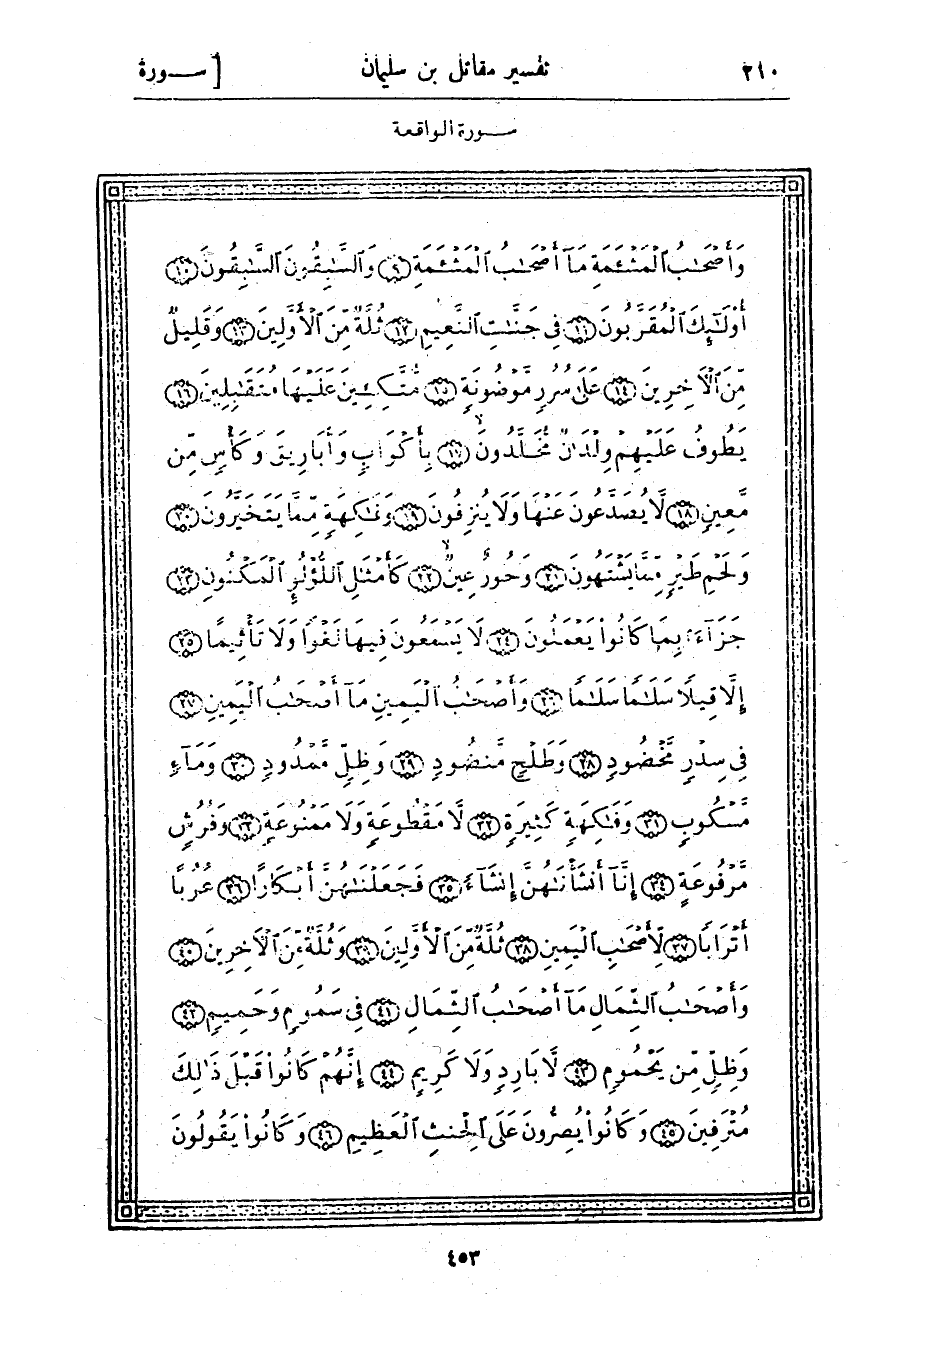 ٢١٠ تفسير مقاتل بن سليمان [ ســورة
ســورة الواقعة
وَأَصْحَٰبُ ٱلْمَشْـَٔمَةِ مَآ أَصْحَٰبُ ٱلْمَشْـَٔمَةِ ٩ وَٱلسَّٰبِقُونَ ٱلسَّٰبِقُونَ ١٠
أُوْلَٰٓئِكَ ٱلْمُقَرَّبُونَ ١١ فِى جَنَّٰتِ ٱلنَّعِيمِ ١٢ ثُلَّةٌ مِّنَ ٱلْأَوَّلِينَ ١٣ وَقَلِيلٌ
مِّنَ ٱلْأٓخِرِينَ ١٤ عَلَىٰ سُرُرٍ مَّوْضُونَةٍ ١٥ مُّتَّكِـِٔينَ عَلَيْهَا مُتَقَٰبِلِينَ ١٦
يَطُوفُ عَلَيْهِمْ وِلْدَٰنٌ مُّخَلَّدُونَ ١٧ بِأَكْوَابٍ وَأَبَارِيقَ وَكَأْسٍ مِّن
مَّعِينٍ ١٨ لَّا يُصَدَّعُونَ عَنْهَا وَلَا يُنزِفُونَ ١٩ وَفَٰكِهَةٍ مِّمَّا يَتَخَيَّرُونَ ٢٠
وَلَحْمِ طَيْرٍ مِّمَّا يَشْتَهُونَ ٢١ وَحُورٌ عِينٌ ٢٢ كَأَمْثَٰلِ ٱللُّؤْلُوِٕ ٱلْمَكْنُونِ ٢٣
جَزَآءًۢ بِمَا كَانُواْ يَعْمَلُونَ ٢٤ لَا يَسْمَعُونَ فِيهَا لَغْوًا وَلَا تَأْثِيمًا ٢٥
إِلَّا قِيلًا سَلَٰمًا سَلَٰمًا ٢٦ وَأَصْحَٰبُ ٱلْيَمِينِ مَآ أَصْحَٰبُ ٱلْيَمِينِ ٢٧
فِى سِدْرٍ مَّخْضُودٍ ٢٨ وَطَلْحٍ مَّنضُودٍ ٢٩ وَظِلٍّ مَّمْدُودٍ ٣٠ وَمَآءٍ
مَّسْكُوبٍ ٣١ وَفَٰكِهَةٍ كَثِيرَةٍ ٣٢ لَّا مَقْطُوعَةٍ وَلَا مَمْنُوعَةٍ ٣٣ وَفُرُشٍ
مَّرْفُوعَةٍ ٣٤ إِنَّآ أَنشَأْنَٰهُنَّ إِنشَآءً ٣٥ فَجَعَلْنَٰهُنَّ أَبْكَارًا ٣٦ عُرُبًا
أَتْرَابًا ٣٧ لِّأَصْحَٰبِ ٱلْيَمِينِ ٣٨ ثُلَّةٌ مِّنَ ٱلْأَوَّلِينَ ٣٩ وَثُلَّةٌ مِّنَ ٱلْأٓخِرِينَ ٤٠
وَأَصْحَٰبُ ٱلشِّمَالِ مَآ أَصْحَٰبُ ٱلشِّمَالِ ٤١ فِى سَمُومٍ وَحَمِيمٍ ٤٢
وَظِلٍّ مِّن يَحْمُومٍ ٤٣ لَّا بَارِدٍ وَلَا كَرِيمٍ ٤٤ إِنَّهُمْ كَانُواْ قَبْلَ ذَٰلِكَ
مُتْرَفِينَ ٤٥ وَكَانُواْ يُصِرُّونَ عَلَى ٱلْحِنثِ ٱلْعَظِيمِ ٤٦ وَكَانُواْ يَقُولُونَ
٤٥٣